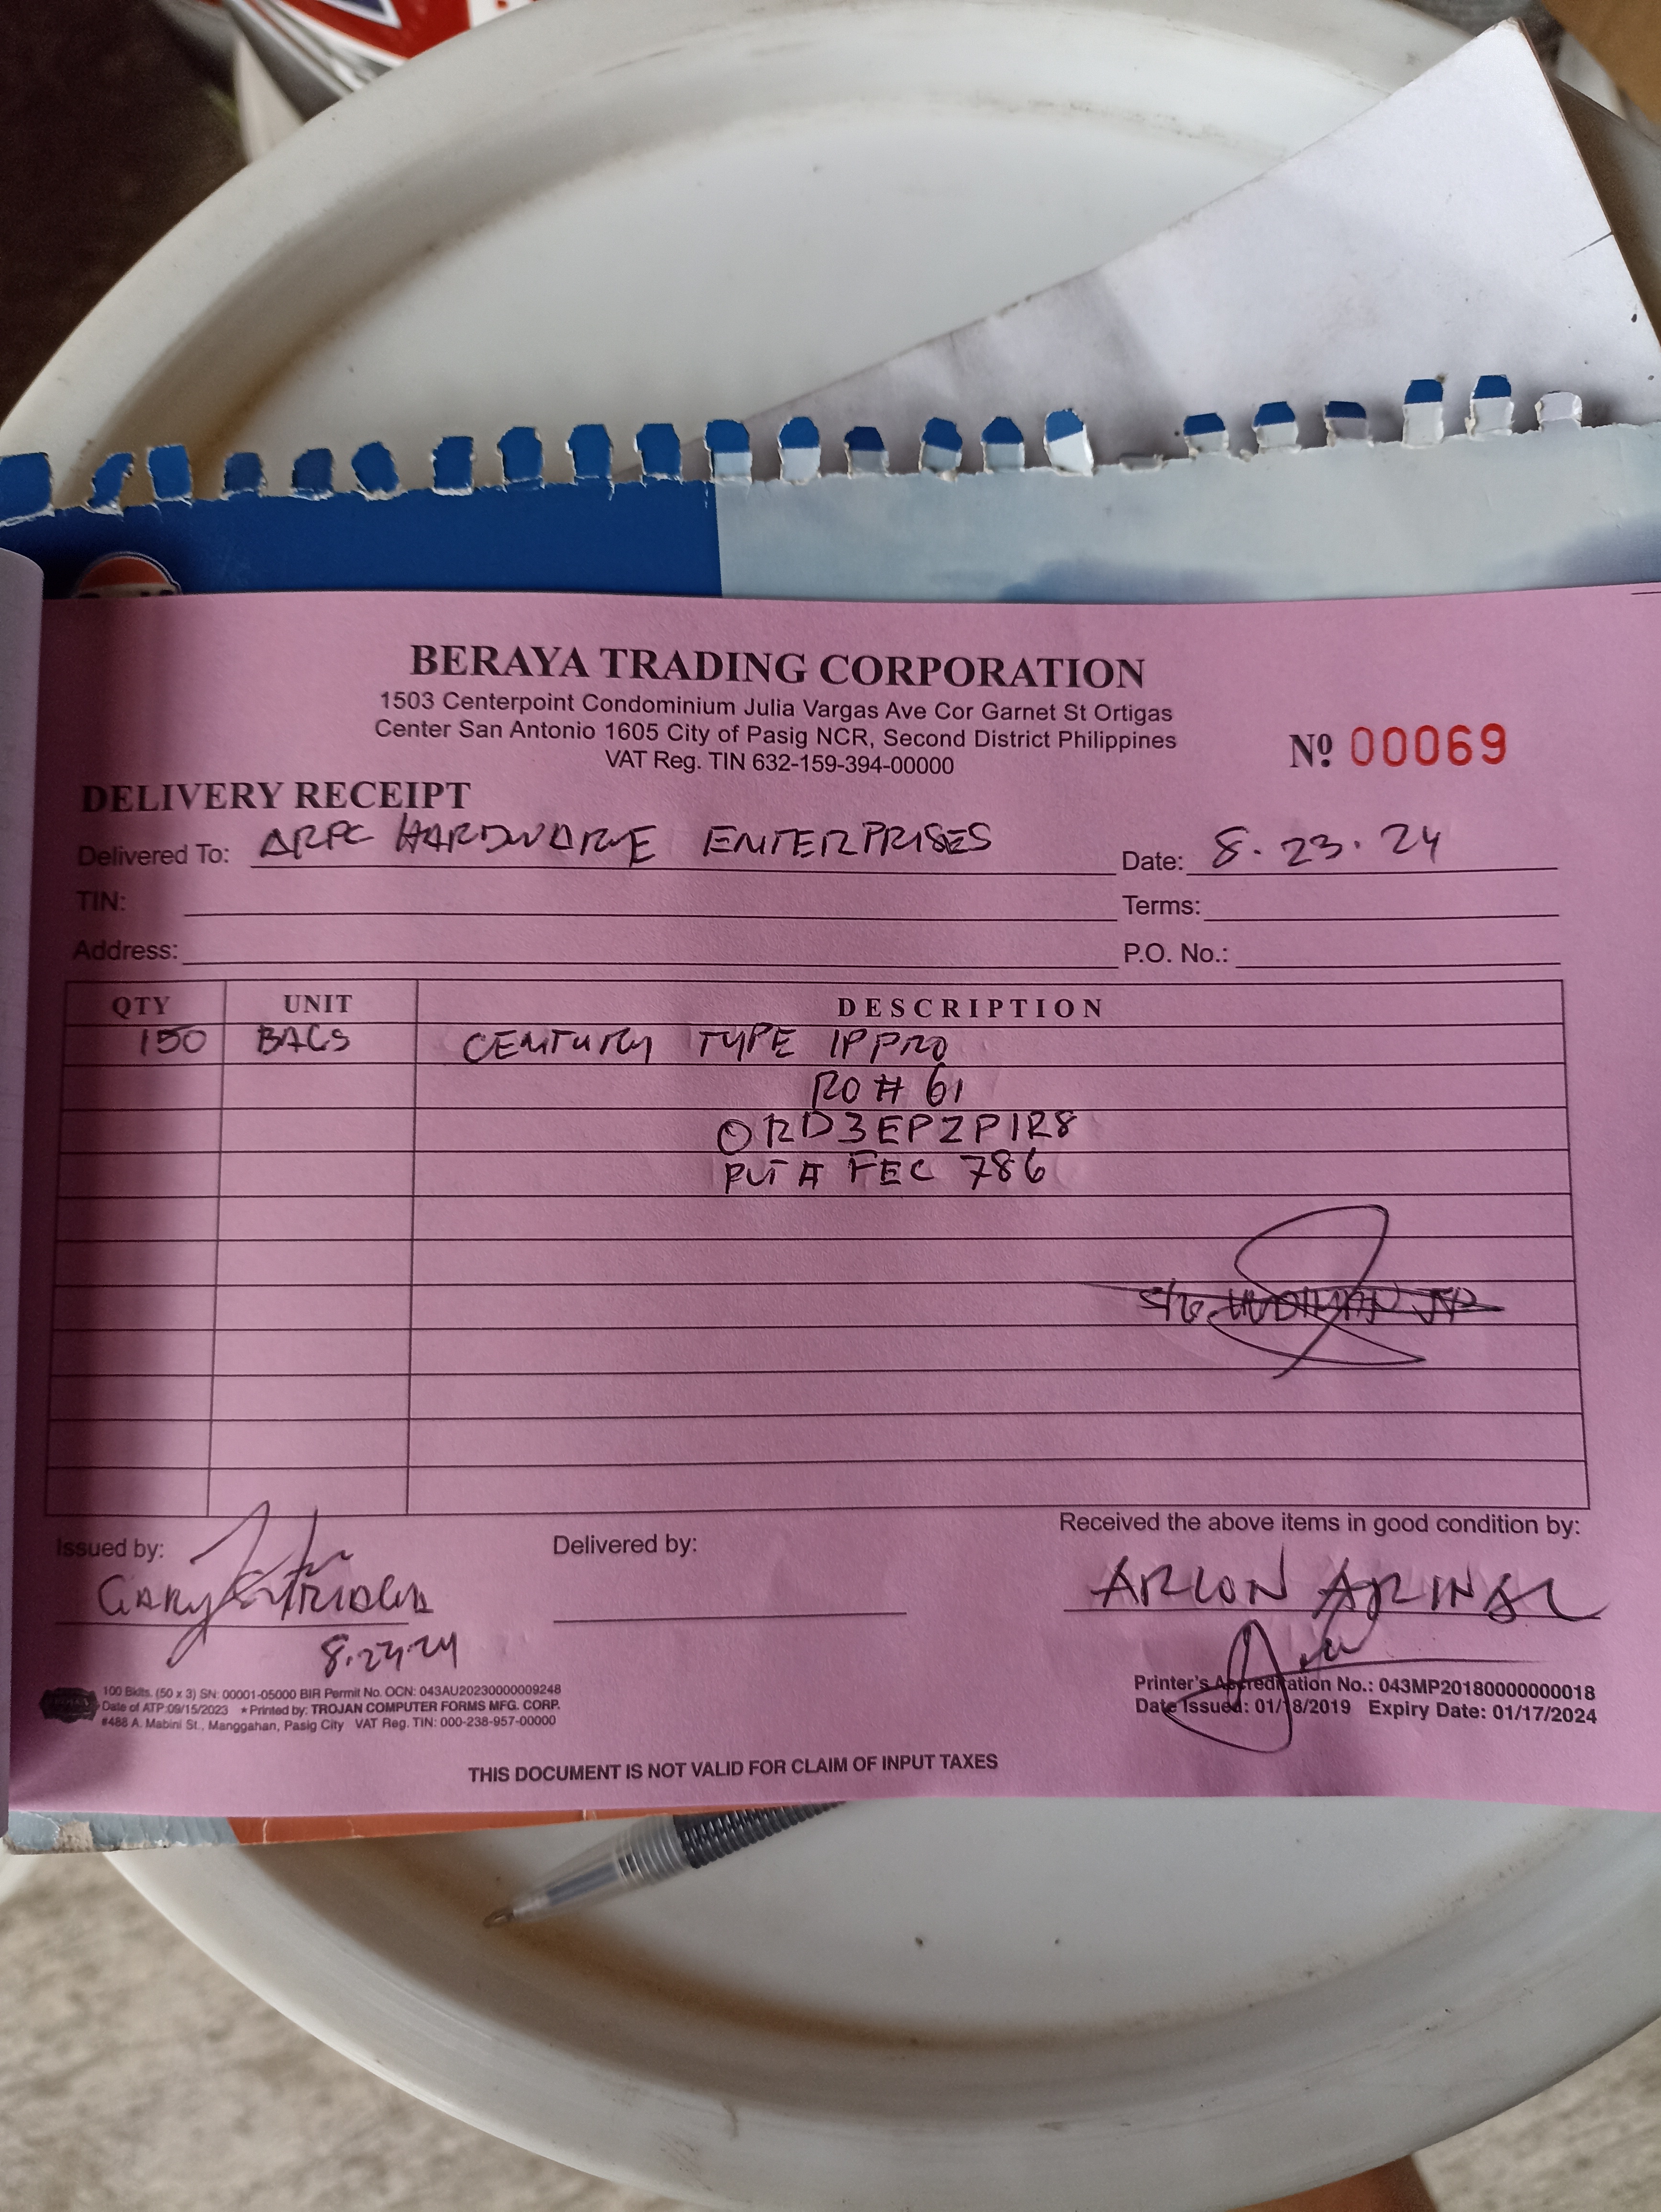 BERAYA TRADING CORPORATION
1503 Centerpoint Condominium Julia Vargas Ave Cor Garnet St Ortigas
Center San Antonio 1605 City of Pasig NCR, Second District Philippines
VAT Reg. TIN 632-159-394-00000
Nº 00069
DELIVERY RECEIPT
Delivered To: ARPC HARDWARE ENTERPRISES Date: 8.23.24
TIN: Terms:
Address: P.O. No.:
QTY UNIT DESCRIPTION
150 BAGS CENTURY TYPE 1P PRO
RO # 61
ORD3EPZP1R8
PLT # FEC 786
JR
Issued by: Delivered by: Received the above items in good condition by:
GARY ARLON
8.23.24
100 Bklts. (50 x 3) SN: 00001-05000 BIR Permit No. OCN: 043AU20230000009248
Date of ATP:09/15/2023 * Printed by: TROJAN COMPUTER FORMS MFG. CORP.
#488 A. Mabini St., Manggahan, Pasig City VAT Reg. TIN: 000-238-957-00000
Printer's Accreditation No.: 043MP20180000000018
Date Issued: 01/18/2019 Expiry Date: 01/17/2024
THIS DOCUMENT IS NOT VALID FOR CLAIM OF INPUT TAXES